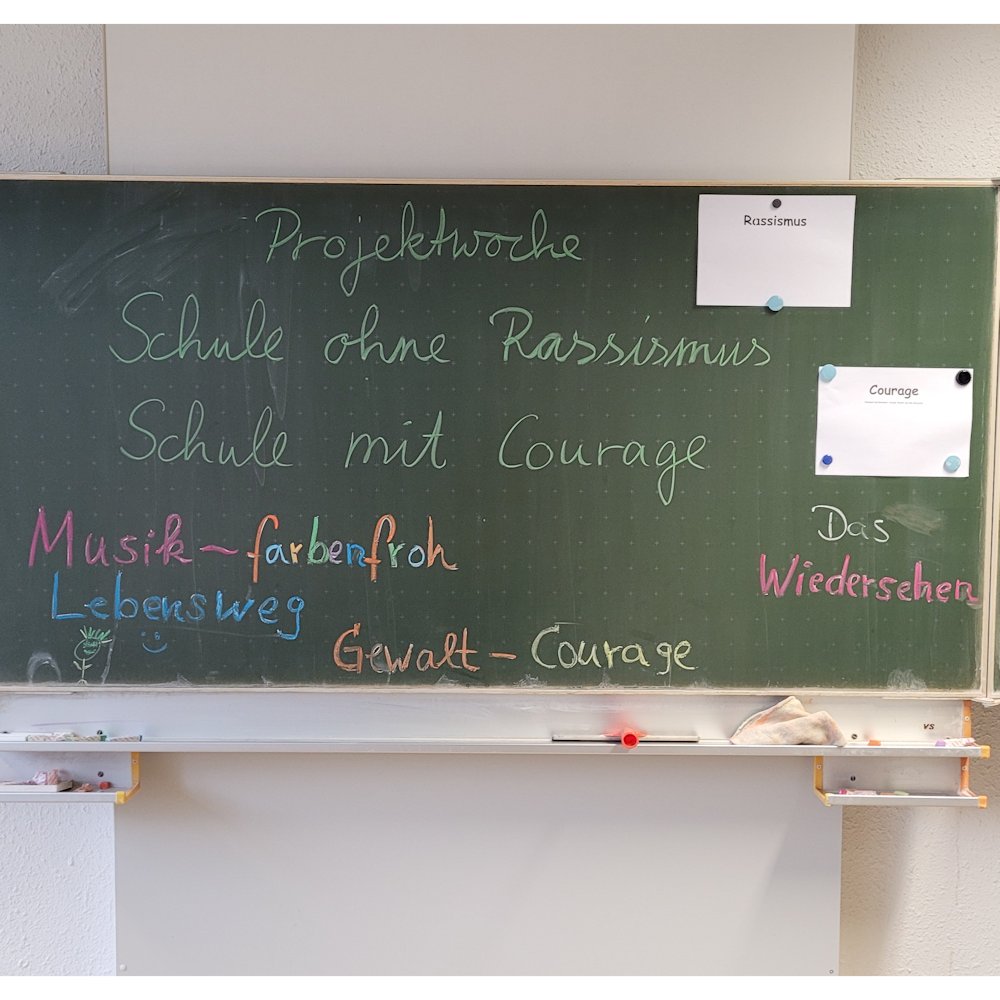 Projektwoche
Rassismus
Schule ohne Rassismus
Courage
Schule mit Courage
Musik - farbenfroh
Das
Wiedersehen
Lebensweg
Gewalt - Courage
vs